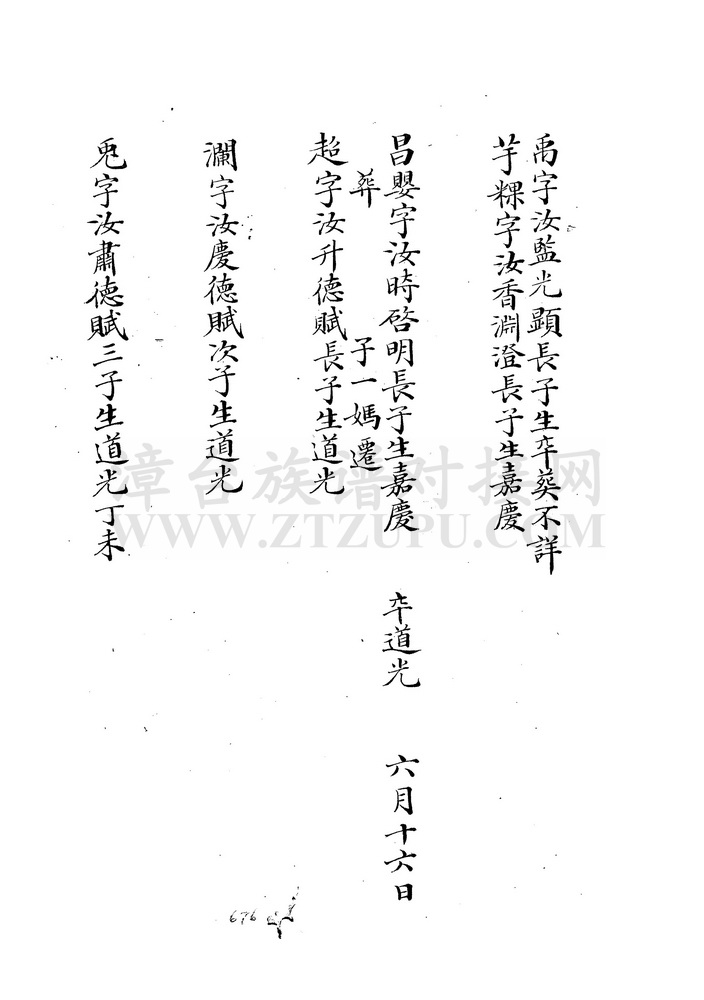 禹字汝監光顕長子生卒葬不詳
芋粿字汝香淵澄長子生嘉慶
昌嬰字汝時啓明長子生嘉慶 卒道光 六月十六日
葬 子一媽遷
超字汝升德賦長子生道光
瀾字汝慶德賦次子生道光
兎字汝肅德賦三子生道光丁未
漳台族谱对接网
WWW.ZTZUPU.COM
676